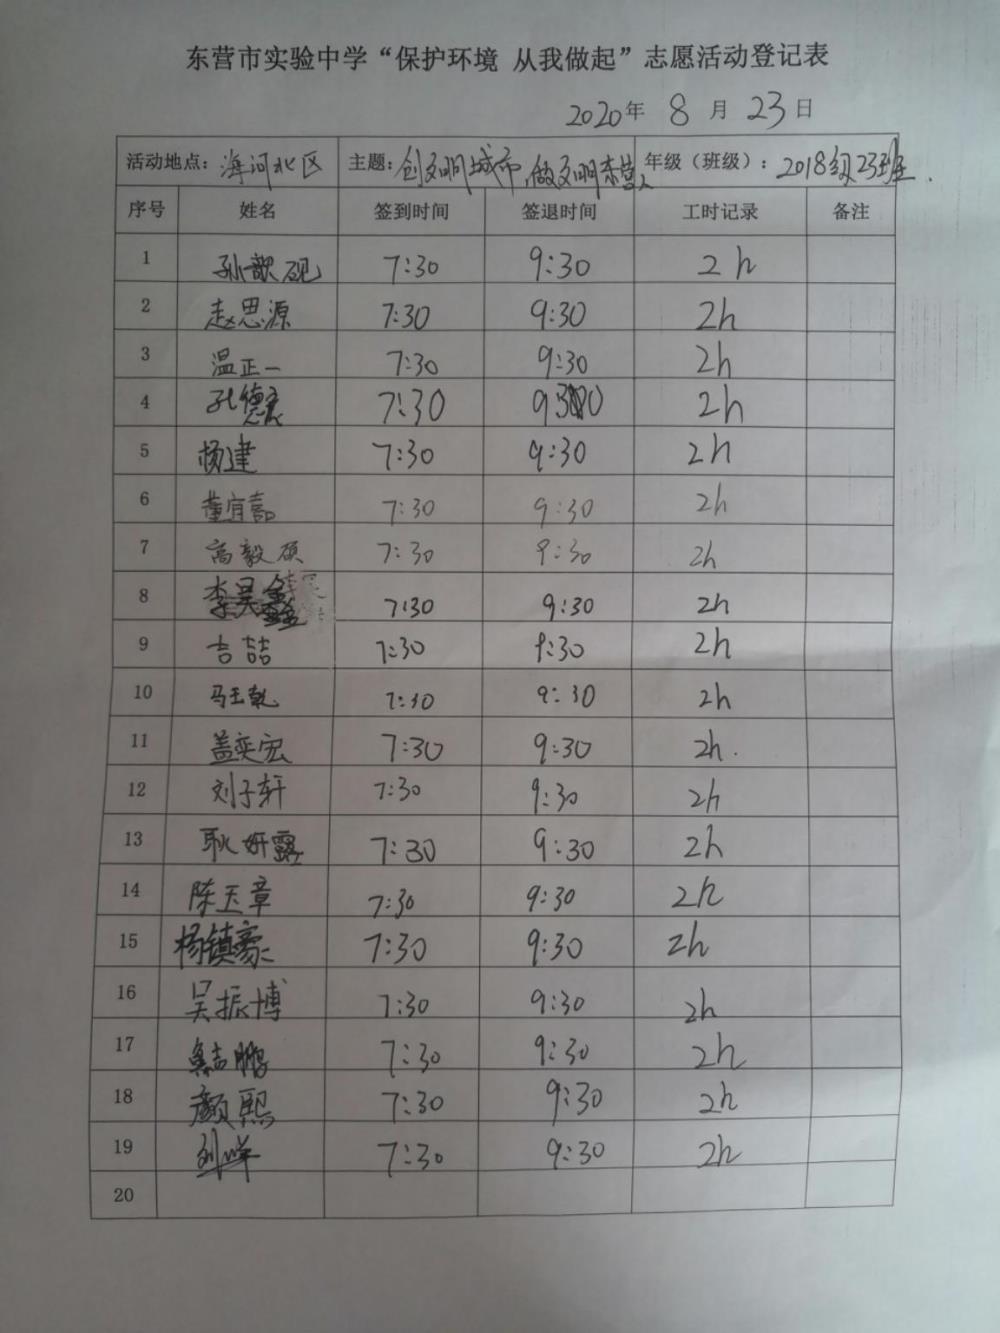 东营市实验中学“保护环境 从我做起”志愿活动登记表
2020年 8 月 23 日
活动地点：海河北区 主题：创文明城市，做文明东营人 年级（班级）：2018级23班
序号 姓名 签到时间 签退时间 工时记录 备注
1 孙歆砚 7:30 9:30 2h
2 赵思源 7:30 9:30 2h
3 温正一 7:30 9:30 2h
4 孔德 7:30 9:30 2h
5 杨建 7:30 9:30 2h
6 董宜嘉 7:30 9:30 2h
7 高毅硕 7:30 9:30 2h
8 李昊鑫 7:30 9:30 2h
9 吉喆 7:30 9:30 2h
10 马玉乾 7:30 9:30 2h
11 盖奕宏 7:30 9:30 2h.
12 刘子轩 7:30 9:30 2h
13 耿妍露 7:30 9:30 2h
14 陈玉章 7:30 9:30 2h
15 杨镇豪 7:30 9:30 2h
16 吴振博 7:30 9:30 2h
17 鹏 7:30 9:30 2h
18 颜熙 7:30 9:30 2h
19 刘 7:30 9:30 2h
20